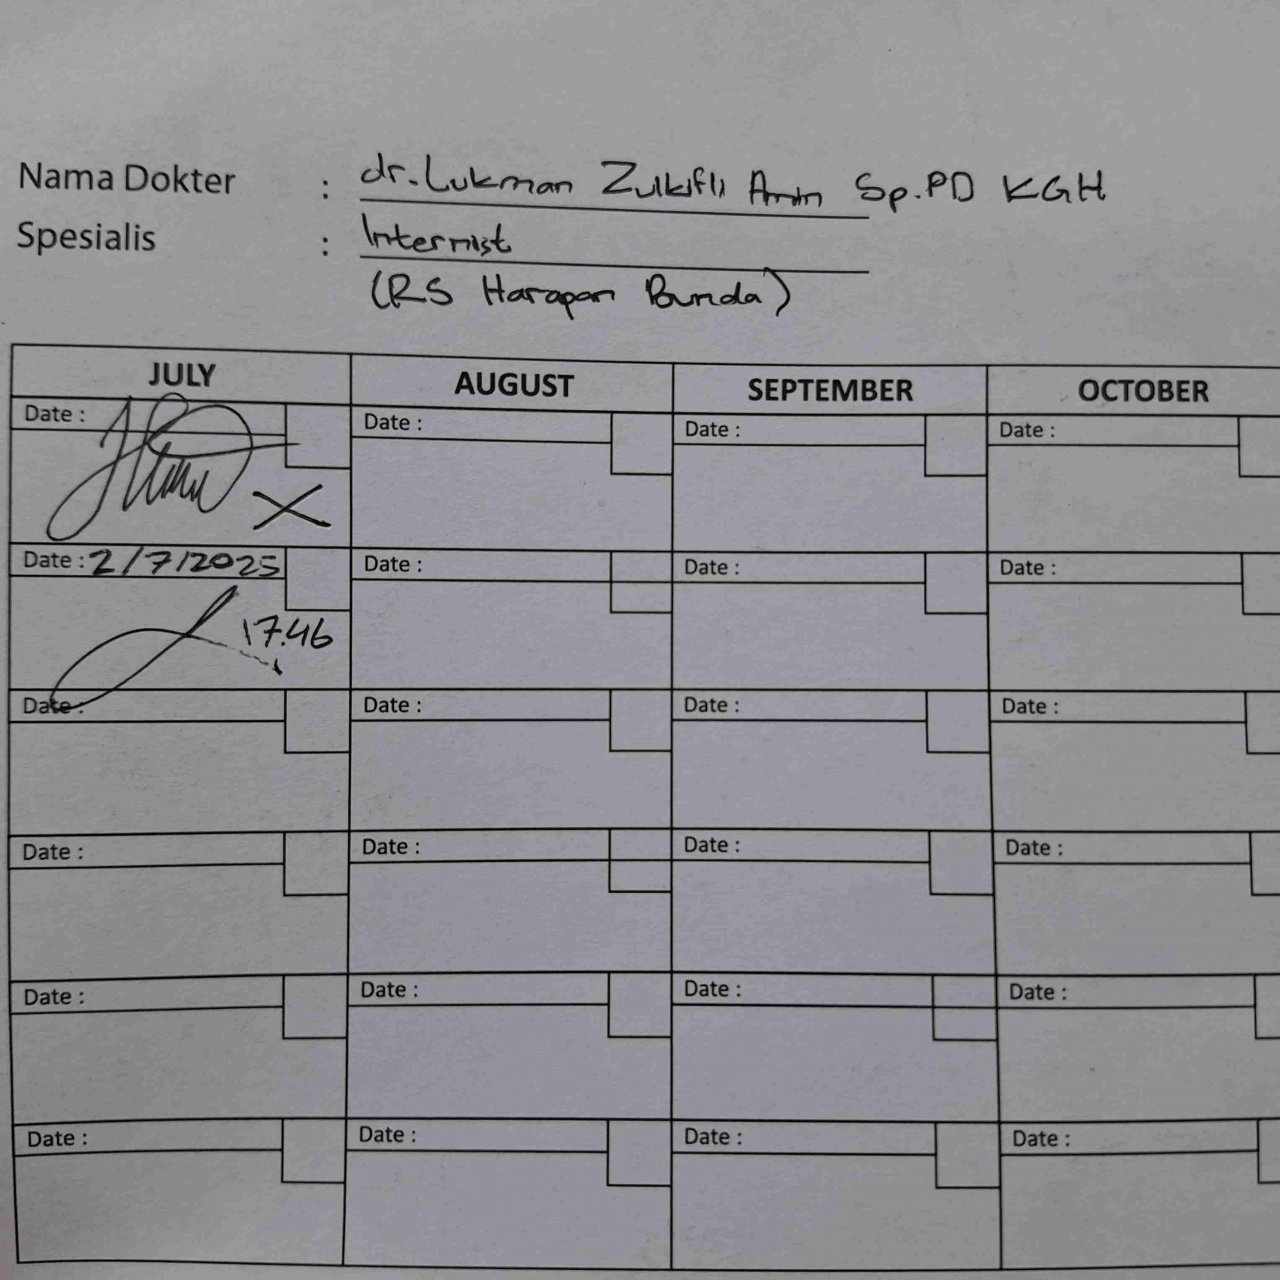 Nama Dokter : dr. Lukman Zulkifli Amin Sp.PD KGH
Spesialis : Internist
(RS Harapan Bunda)
JULY AUGUST SEPTEMBER OCTOBER
Date : Date : Date : Date :
X
Date : 2/7/2025 Date : Date : Date :
17.46
Date : Date : Date : Date :
Date : Date : Date : Date :
Date : Date : Date : Date :
Date : Date : Date : Date :